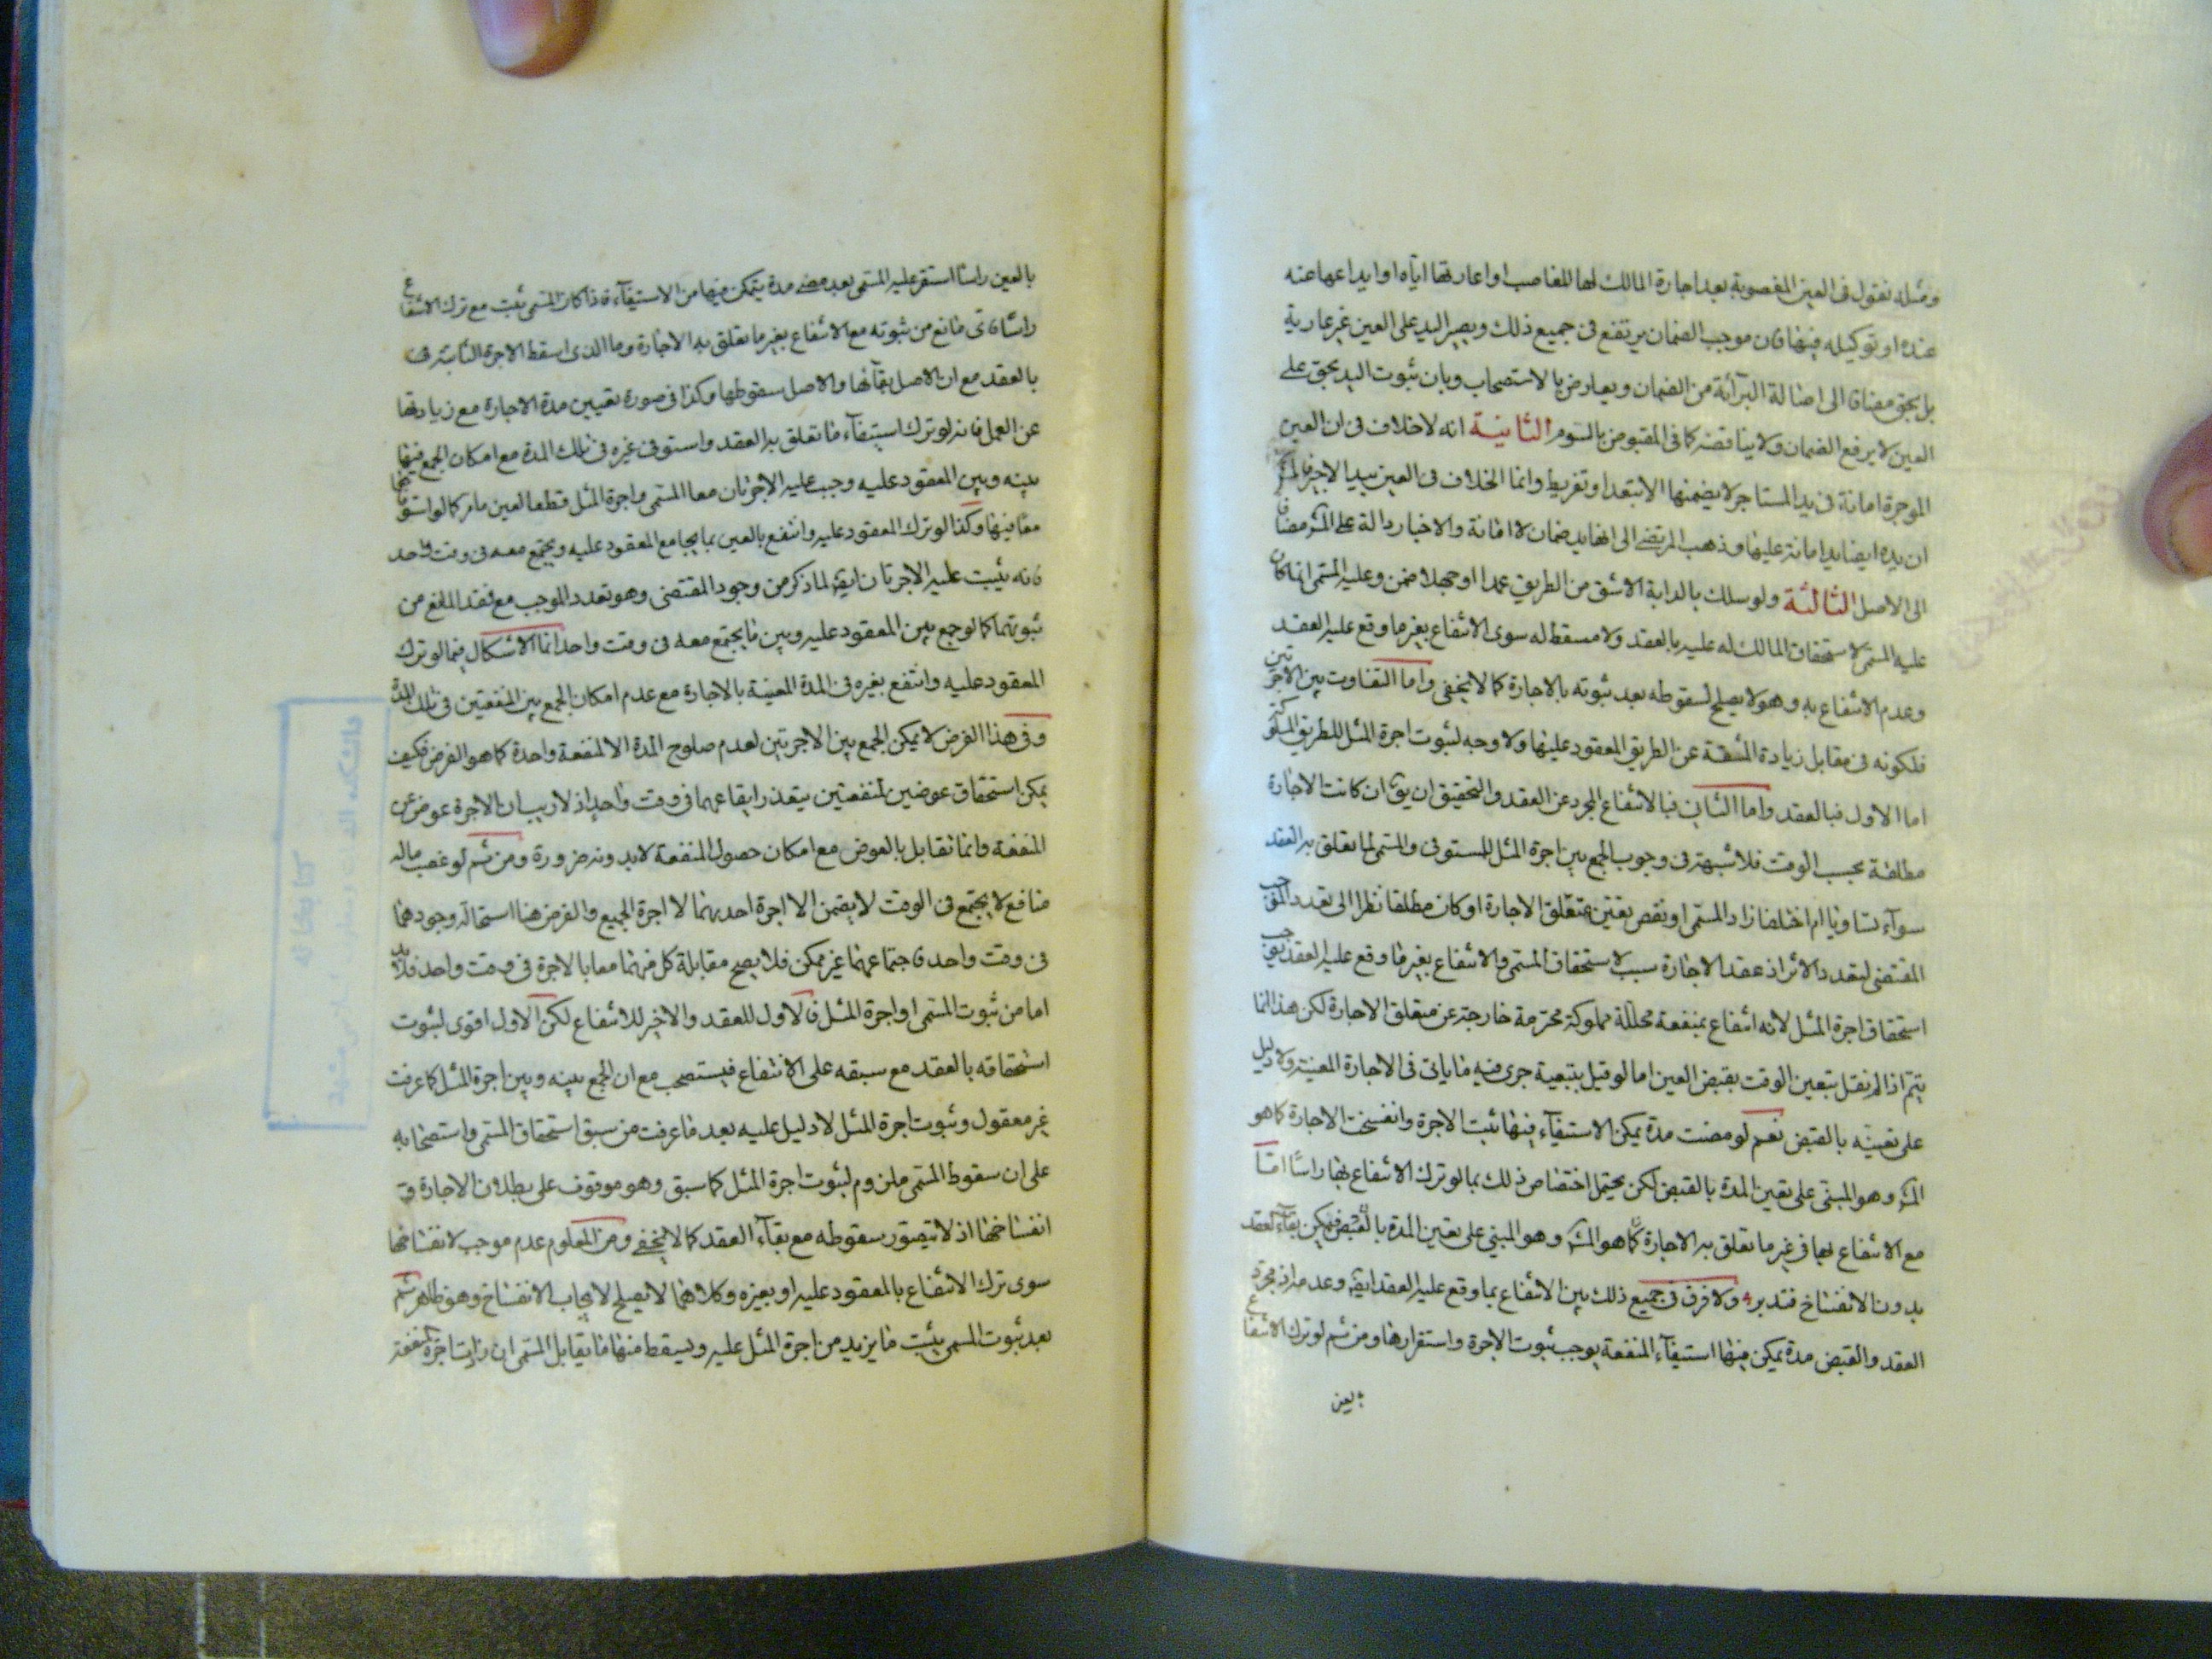 ومثله نقول فى العين المغصوبة بعد اجارة المالك لها للغاصب او اعارتها اياه او ايداعها عنه
عنده او توكيله فيها فان موجب الضمان يرتفع فى جميع ذلك ويصير اليد على العين غير عارية
بل بحق مضافا الى اصالة البرآئة من الضمان ويعارض بالاستصحاب وبان ثبوت اليد بحق على
العين لا يرفع الضمان ولا يناقضه كما فى المقبوض بالسوم الثانية انه لا خلاف فى ان العين
الموجرة امانة فى يد المستاجر لا يضمنها الا بتعد او تفريط وانما الخلاف فى العين بيد الاجير
ان يده ايضا يد امانة عليها وذهب المرتضى الى انها يد ضمان لا امانة والاخبار دالة على المش مضافا
الى الاصل الثالثة ولو سلك بالدابة الاشق من الطريق عمدا او جهلا ضمن وعليه المسمى انما كان
عليه المسمى لاستحقاق المالك له عليه بالعقد ولا مسقط له سوى الانتفاع بغير ما وقع عليه العقد
وعدم الانتفاع به وهو لا يصلح لسقوطه بعد ثبوته بالاجارة كما لا يخفى واما التفاوت بين الاجرتين
فلكونه فى مقابل زيادة المشقة عن الطريق المعقود عليها ولا وجه لثبوت اجرة المثل للطريق المسلوكة
اما الاول فبالعقد واما الثانى فبالانتفاع المجرد عن العقد والتحقيق ان يق ان كانت الاجارة
مطلقة بحسب الوقت فلا شبهة فى وجوب الجمع بين اجرة المثل للمستوفى والمسمى لما تعلق به العقد
سوآء تساويا ام اختلفا زاد المسمى او نقص بقتين متعلق الاجارة او كان مطلقا نظرا الى تعدد الموجب
المقتضى لتعدد الاثر اذ عقد الاجارة سبب لاستحقاق المسمى والانتفاع بغير ما وقع عليه العقد يوجب
استحقاق اجرة المثل لانه انتفاع بمنفعة محللة مملوكة محترمة خارجة عن متعلق الاجارة لكن هذا انما
يتم اذا لم نقل بتعين الوقت بقبض العين اما لو قيل بتبعية جرى فيه ما ياتى فى الاجارة المعينة ولا دليل
على تعينه بالقبض نعم لو مضت مدة يمكن الاستيفآء فيها ثبت الاجرة وانفسخت الاجارة كما هو
المش وهو المبنى على تعين المدة بالقبض لكن يحتمل اختصاص ذلك بما لو ترك الانتفاع بها راسًا امّا
مع الانتفاع بها فى غير ما تعلق به الاجارة كما هو المش وهو المبنى على تعين المدة بالقبض فيمكن بقآء العقد
بدون الانفساخ فتدبر ولا فرق فى جميع ذلك بين الانتفاع بما وقع عليه العقد ايضا وعدمه اذ مجرد
العقد والقبض مدة يمكن فيها استيفآء المنفعة يوجب ثبوت الاجرة واستقرارها ومن ثم لو ترك الانتفاع
بالعين
بالعين راسًا استقر عليه المسمى بعد مضى مدة يتمكن فيها من الاستيفآء فاذا كان المسمى يثبت مع ترك الانتفاع
راسًا فاى مانع من ثبوته مع الانتفاع بغير ما تعلق به الاجارة وما الذى اسقط الاجرة الثابتة
بالعقد مع ان الاصل بقآئها والاصل سقوطها وكذا فى صورة تعيين مدة الاجارة مع زيادتها
عن العمل فانه لو ترك استيفآء ما تعلق به العقد واستوفى غيره فى تلك المدة مع امكان الجمع فيها
بينه وبين المعقود عليه وجب عليه الاجرتان معا المسمى واجرة المثل قطعا لعين ما مر كما لو استوفاهما
معا فيها وكذا لو ترك المعقود عليه وانتفع بالعين بما يجامع المعقود عليه ويجتمع معه فى وقت واحد
فانه يثبت عليه الاجرتان ايضا لما ذكر من وجود المقتضى وهو تعدد الموجب مع فقد المانع من
ثبوتهما كما لو جمع بين المعقود عليه وبين ما يجتمع معه فى وقت واحد انما الاشكال فيما لو ترك
المعقود عليه وانتفع بغيره فى المدة المعينة بالاجارة مع عدم امكان الجمع بين المنفعتين فى تلك المدة
وفى هذا الفرض لا يمكن الجمع بين الاجرتين لعدم صلوح المدة الا لمنفعة واحدة كما هو الفرض فكيف
يمكن استحقاق عوضين لمنفعتين يتعذر ايقاعهما فى وقت واحد اذ لا ريب ان الاجرة عوض عن
المنفعة وانما تقابل بالعوض مع امكان حصول المنفعة لا بدونه ضرورة ومن ثم لو غصب ماله
منافع لا يجتمع فى الوقت لا يضمن الا اجرة احديهما لا اجرة الجميع والفرض هنا استحالة وجودهما
فى وقت واحد فاجتماعهما غير ممكن فلا يصح مقابلة كل منهما معا بالاجرة فى وقت واحد فلا بد
اما من ثبوت المسمى او اجرة المثل فالاول للعقد والاخير للانتفاع لكن الاول اقوى لثبوت
استحقاقه بالعقد مع سبقه على الانتفاع فيستصحب مع ان الجمع بينه وبين اجرة المثل كما عرفت
غير معقول وثبوت اجرة المثل لا دليل عليه بعد ما عرفت من سبق استحقاق المسمى واستصحابه
على ان سقوط المسمى ملزوم لثبوت اجرة المثل كما سبق وهو موقوف على بطلان الاجارة و
انفساخها اذ لا يتصور سقوطه مع بقآء العقد كما لا يخفى ومن المعلوم عدم موجب لانفساخها
سوى ترك الانتفاع بالمعقود عليه او بغيره وكلاهما لا يصلح لايجاب الانفساخ وهو ظاهر ثم
بعد ثبوت المسمى يثبت ما يزيد من اجرة المثل عليه ويسقط منها ما يقابل المسمى ان زادت اجرة منفعة